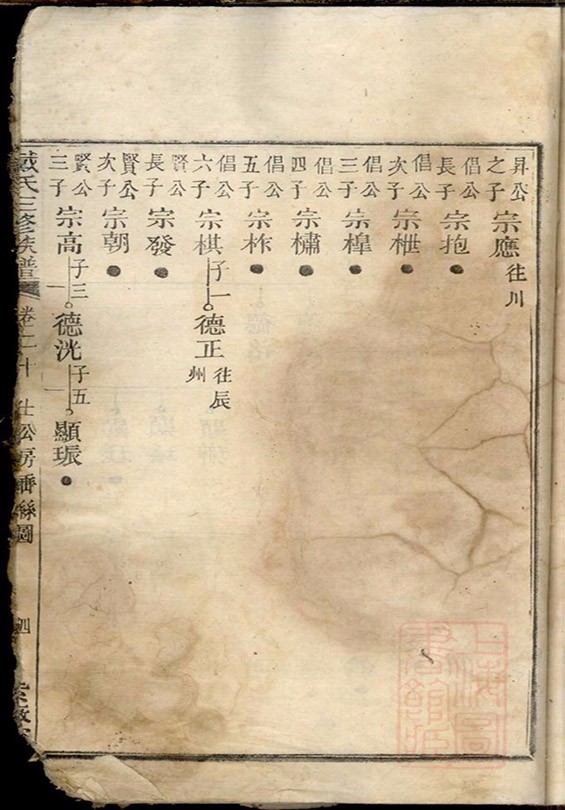 昇公之子 宗應 往川
倡公長子 宗抱
倡公次子 宗枻
倡公三子 宗楻
倡公四子 宗橚
倡公五子 宗柞
倡公六子 宗棋 子一 德正 往辰州
賢公長子 宗發
賢公次子 宗朝
賢公三子 宗高 子三 德洸 子五 顯琜
氏三修族譜 卷二十 仕公房 圖 四